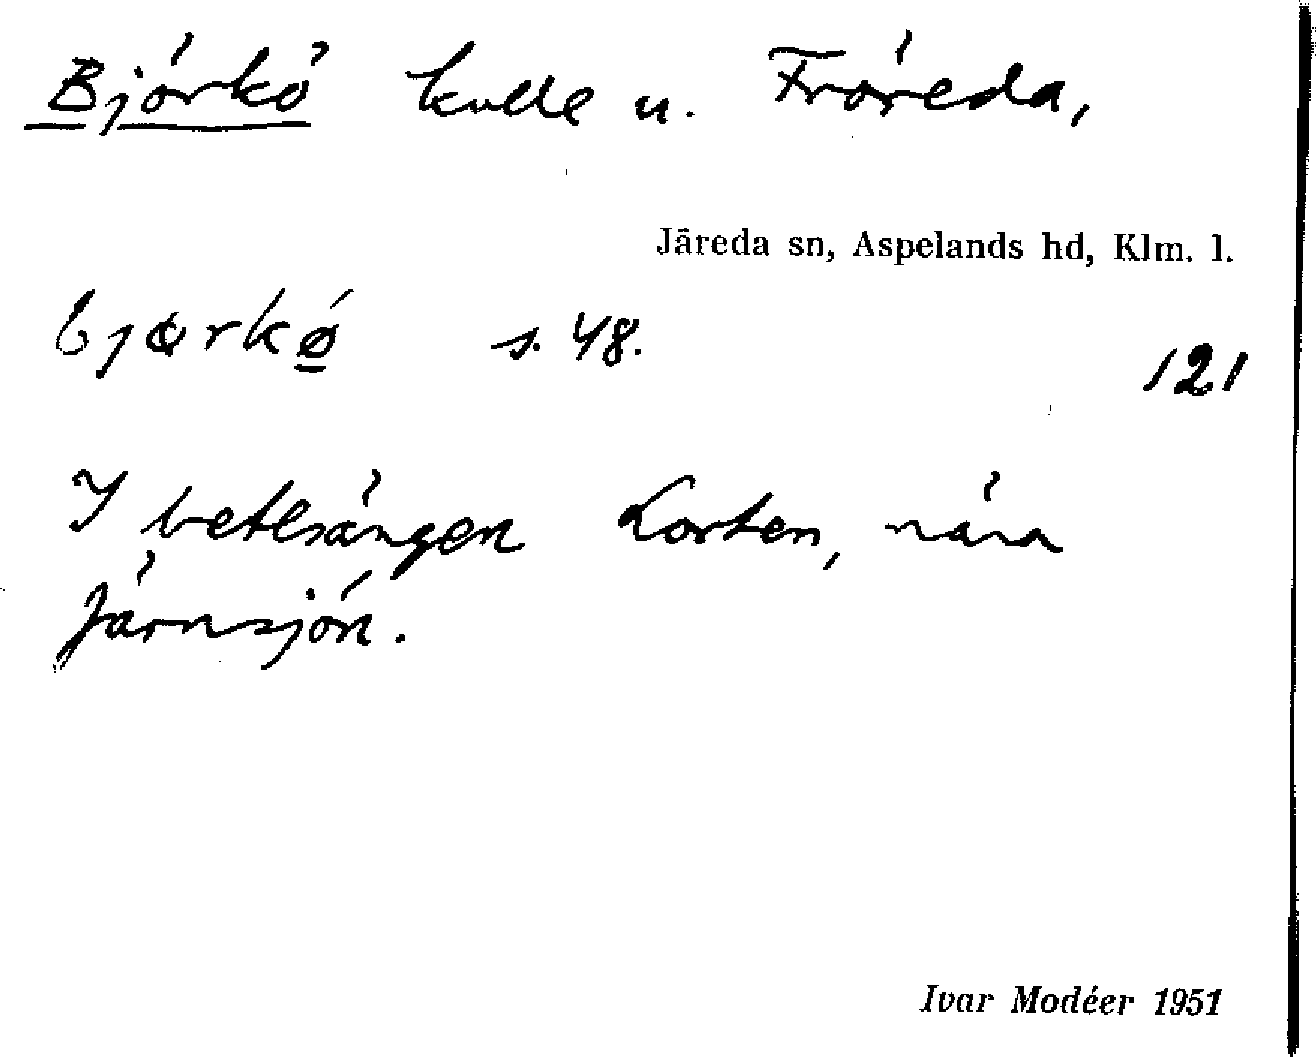 Björkö kulle u. Fröreda,
Järeda sn, Aspelands hd, Klm. l.
bjørkø̲ s. 48.
121
I betesängen Lorten, nära
Järnsjön.
Ivar Modéer 1951